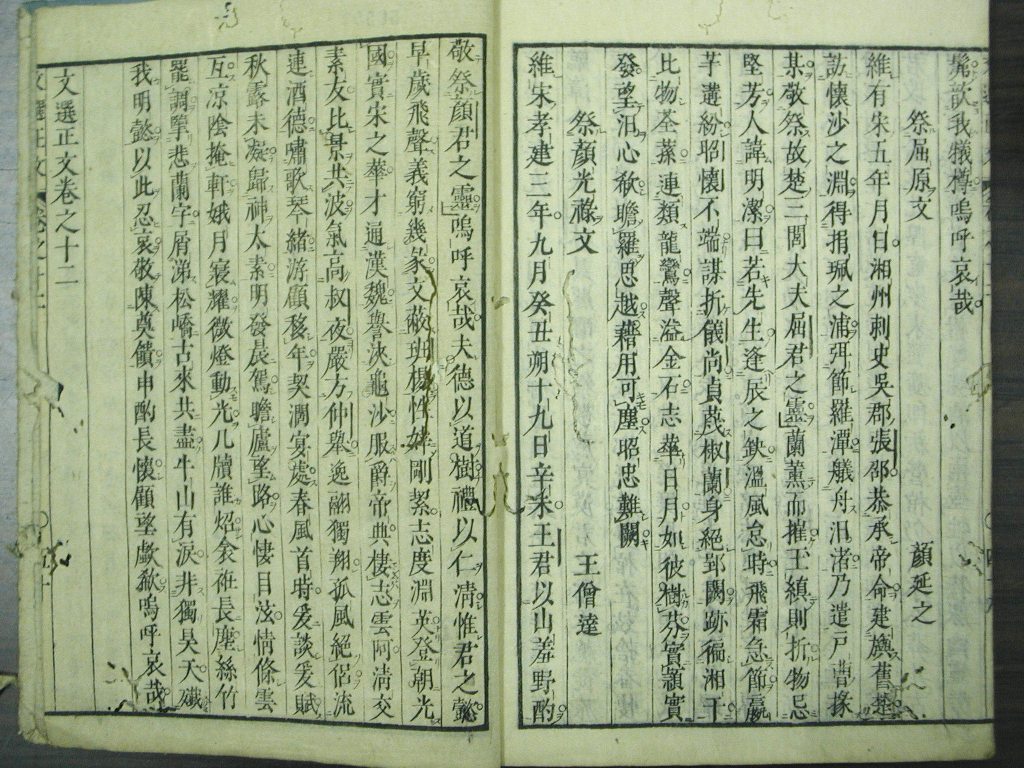 歆我犧樽嗚呼哀哉
祭屈原文 顏延之
維有宋五年月日湘州刺史吳郡張邵恭承帝命建旟舊楚
訪懷沙之淵得捐珮之浦弭節羅潭艤舟汨渚乃遣戸曹掾
某敬祭故楚三閭大夫屈君之靈蘭薰而摧玉縝則折物忌
堅芳人諱明潔曰若先生逢辰之缺溫風怠時飛霜急節嬴
芉遘紛昭懷不端謀折儀尚貞蔑椒蘭身絕郢闕跡徧湘干
比物荃蓀連類龍鸞聲溢金石志華日月如彼樹芬實穎實
發望汨心欷瞻羅思越藉用可塵昭忠難闕
祭顏光祿文 王僧達
維宋孝建三年九月癸丑朔十九日辛未王君以山羞野酌
敬祭顏君之靈嗚呼哀哉夫德以道樹禮以仁清惟君之懿
早歲飛聲義窮幾彖文蔽班楊性婞剛絜志度淵英登朝光
國實宋之華才通漢魏譽浹龜沙服爵帝典棲志雲阿清交
素友比景共波氣高叔夜嚴方仲舉逸翮獨翔孤風絕侶流
連酒德嘯歌琴緒游顧移年契濶宴處春風首時爰談爰賦
秋露未凝歸神太素明發晨駕瞻廬望路心悽目泫情條雲
互凉陰掩軒娥月寢耀微燈動光几牘誰炤衾衽長塵絲竹
罷調擥悲蘭宇屑涕松嶠古來共盡牛山有淚非獨昊天殲
我明懿以此忍哀敬陳奠饋申酌長懷顧望歔欷嗚呼哀哉
文選正文卷之十二